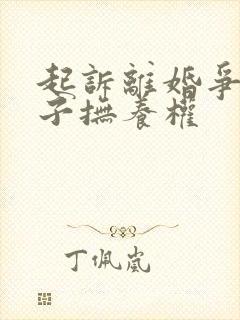 起訴離婚爭
子撫養權
丁佩嵐